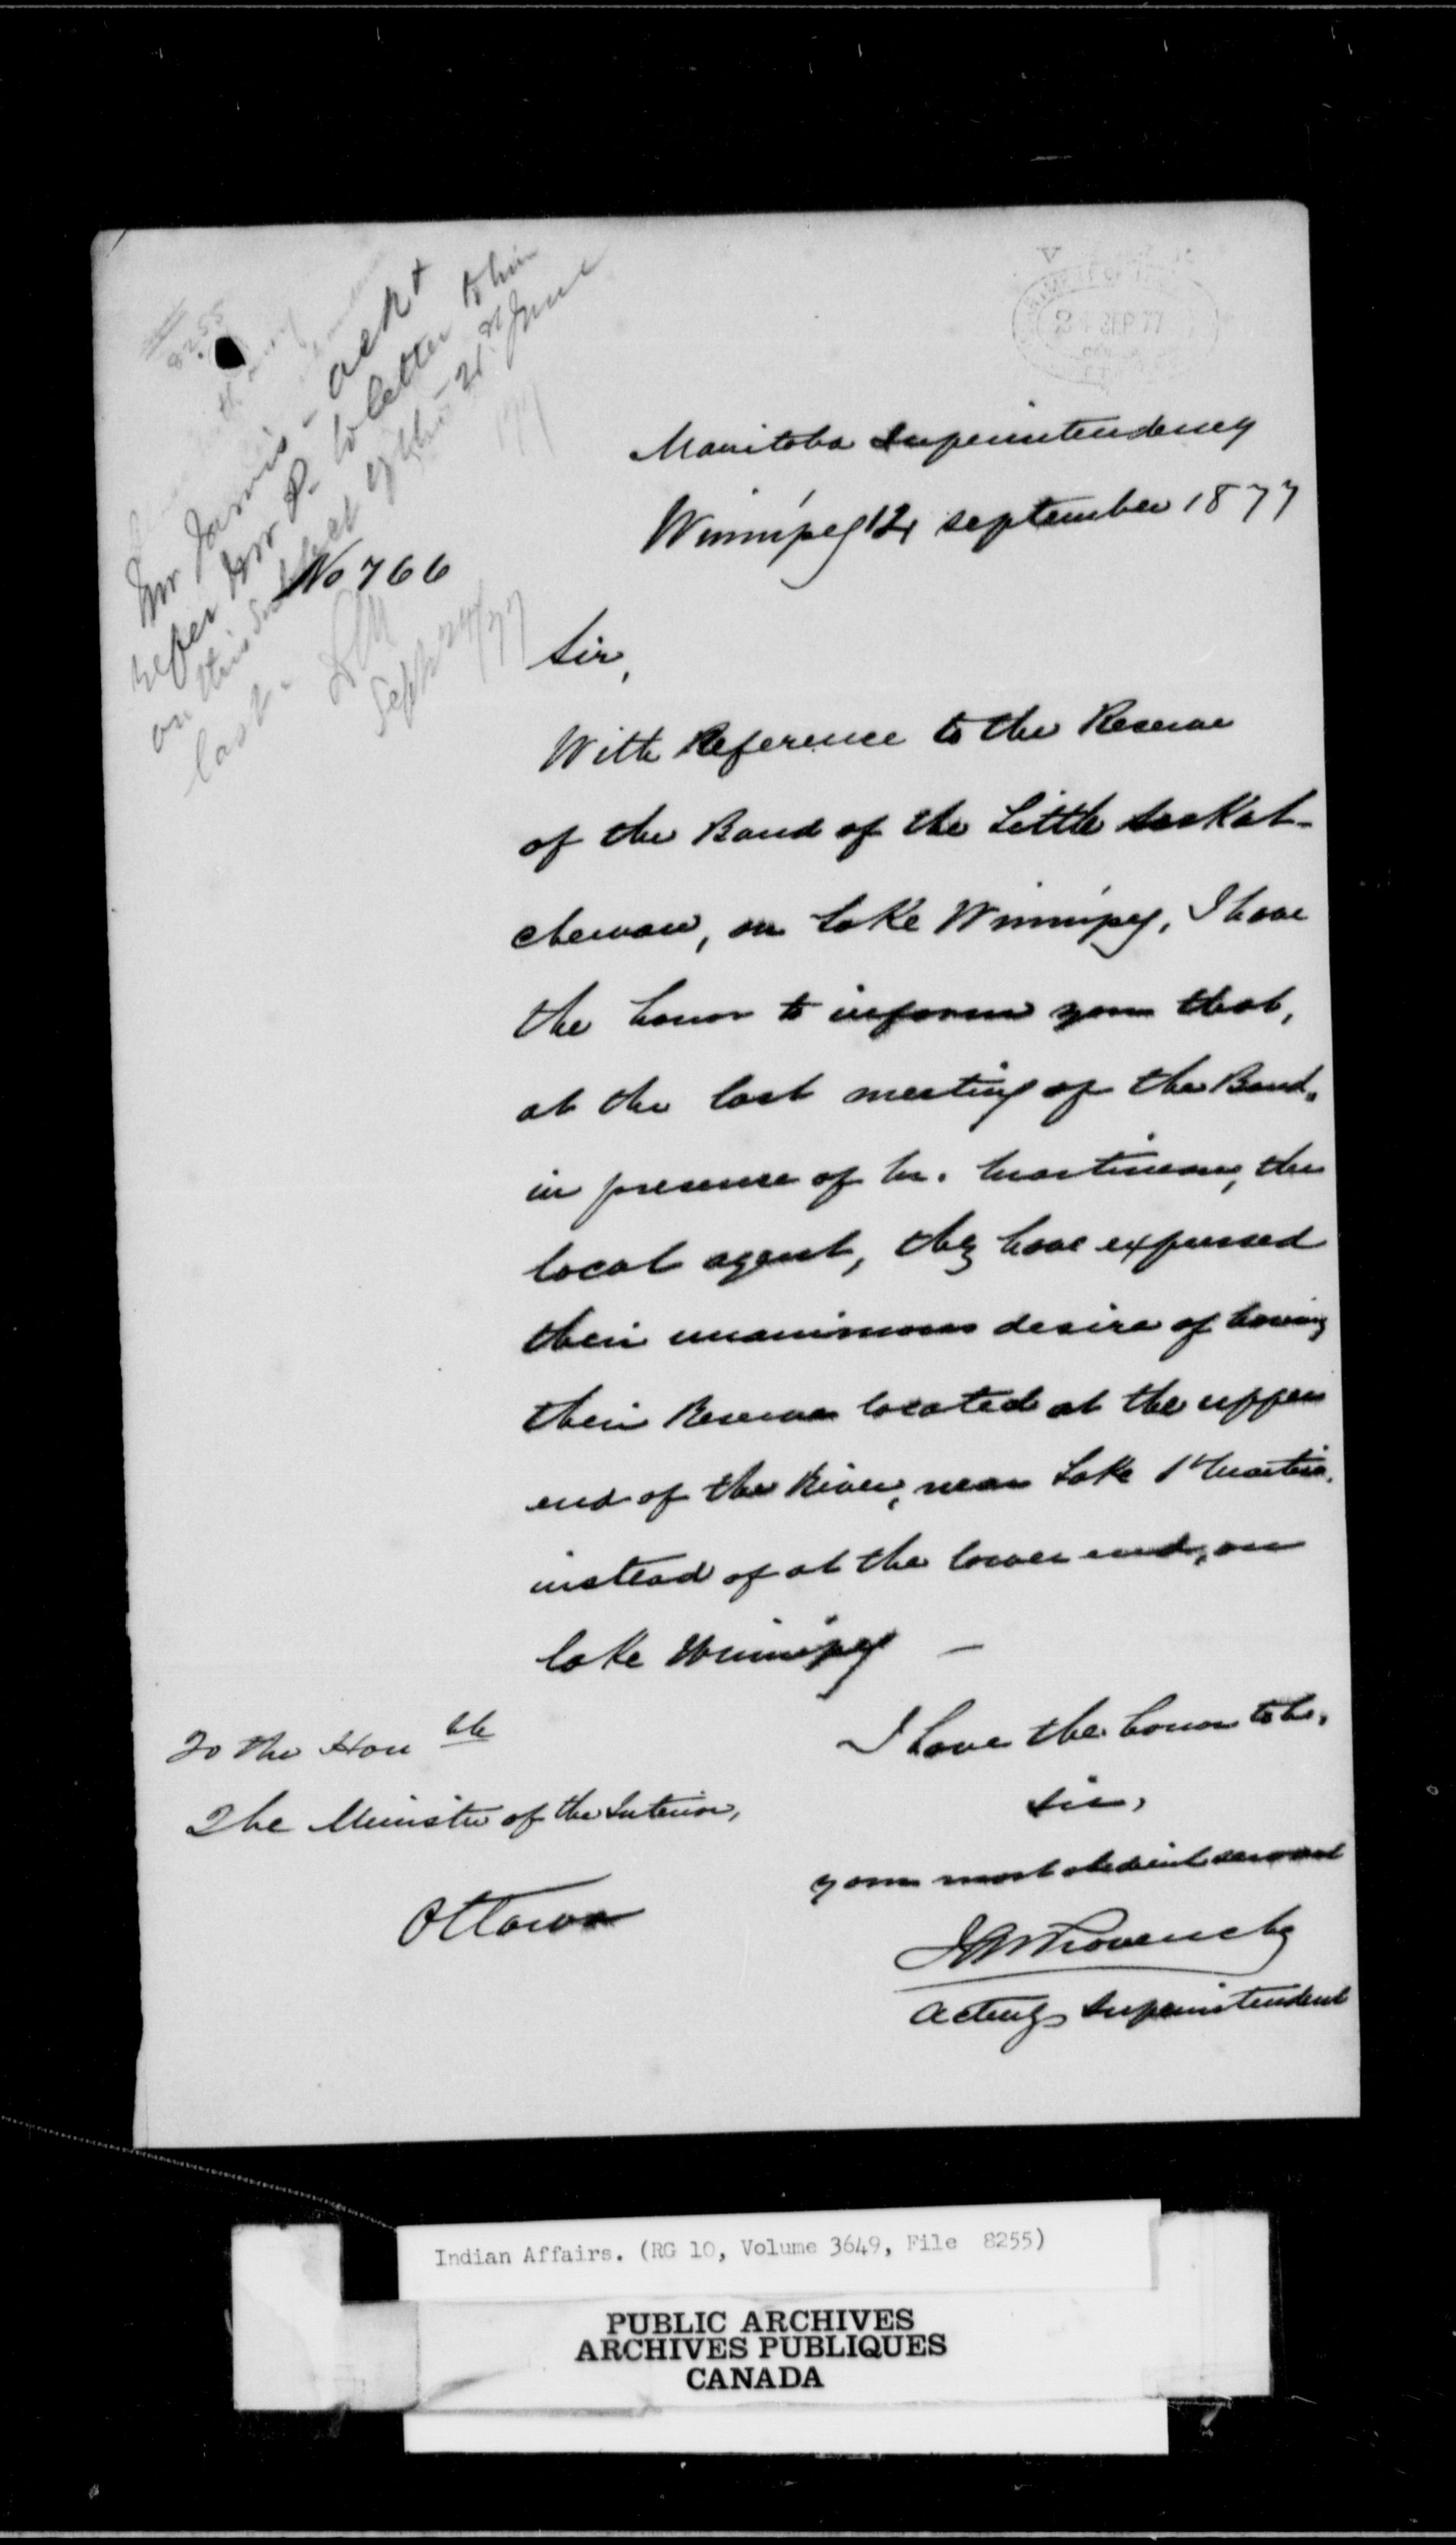 8255
Mr Jarvis - ackt
refer Mr P. to letter to him
on this subject of the - 21st June
last.
Sept 24/77
24 SEP 77
Manitoba Superintendency
Winnipeg 12 september 1877
No 766
Sir,
With Reference to the Reserve
of the Band of the Little Saskat-
chewan, on Lake Winnipeg, I have
the honor to inform you that,
at the last meeting of the Band,
in presence of Mr. Martineau, the
local agent, they have expressed
their unanimous desire of having
their Reserve located at the upper
end of the River, near Lake St Martin,
instead of at the lower end, on
lake Winnipeg —
I have the honor to be,
Sir,
your most obedient servant
J A N Provencher
Acting Superintendent
To the Honble
The Minister of the Interior,
Ottawa
Indian Affairs. (RG 10, Volume 3649, File 8255)
PUBLIC ARCHIVES
ARCHIVES PUBLIQUES
CANADA